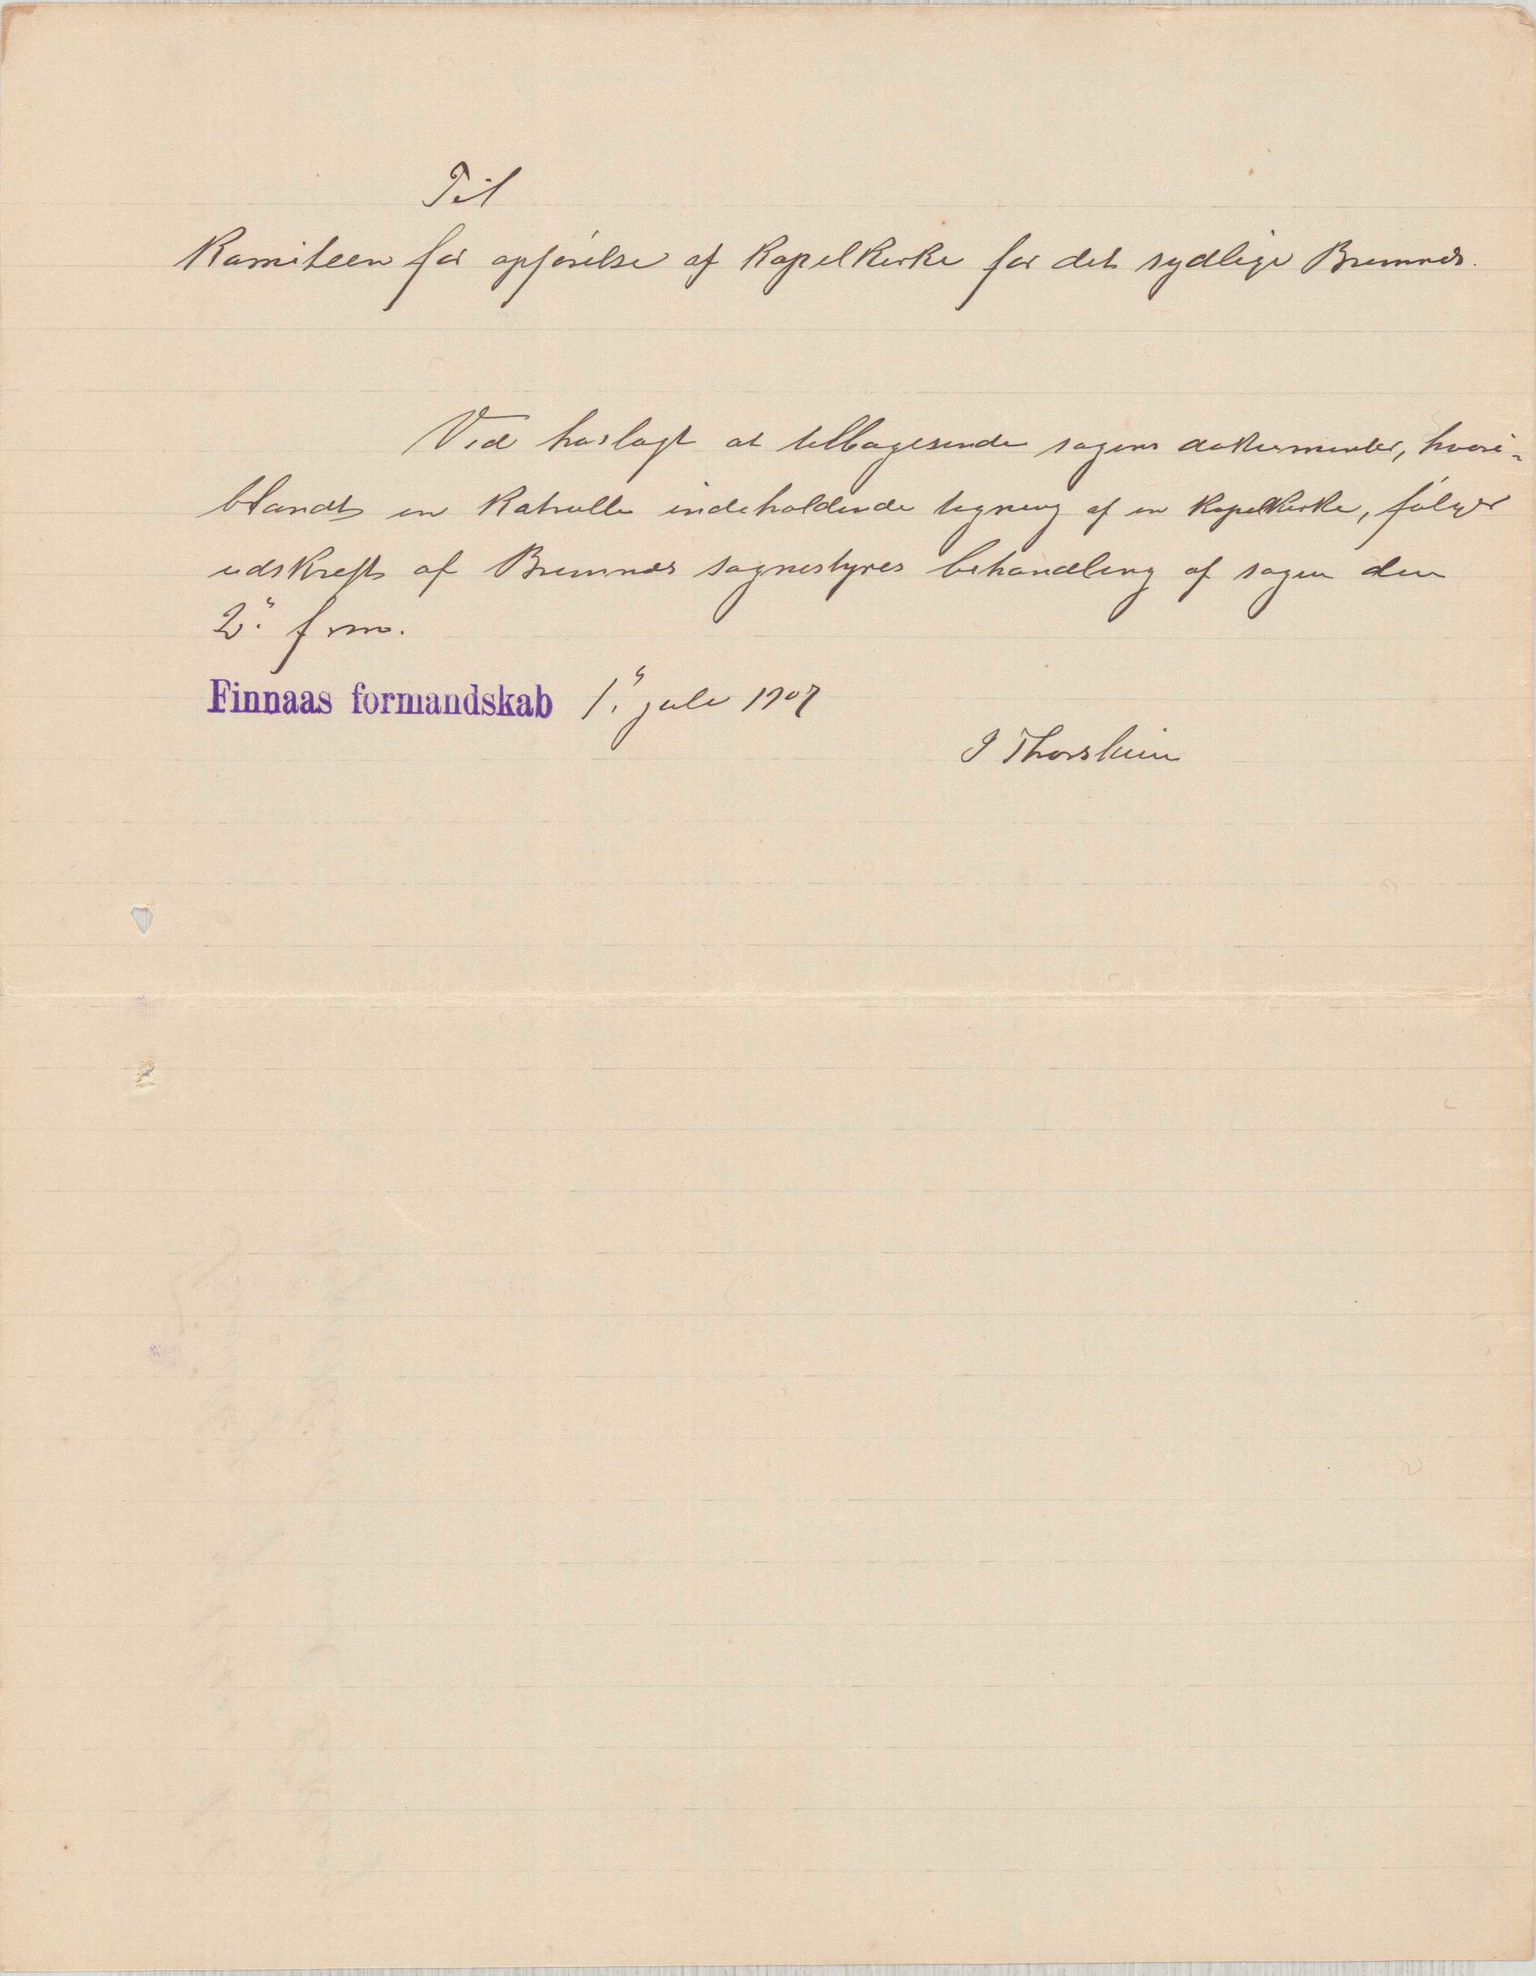 Til
Komiteen for opførelse af kapelkirke for det sydlige Bremnes.
Ved hoslagt at tilbagesende sagens dokumenter, hvori-
blandt en rulle indeholdende tegning af en kapelkirke, følger
udskrift af Bremnes sognestyres behandling af sagen den
2. f. m.
Finnaas formandskab 1. juli 1907
J Thorstein